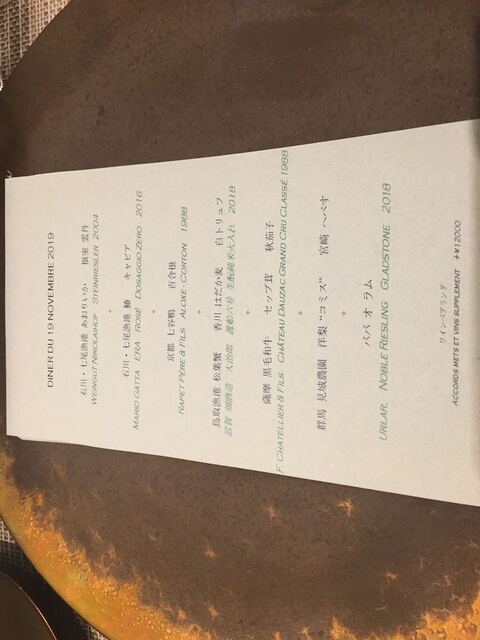 DINER DU 19 NOVEMBRE 2019
石川・七尾漁港 あおりいか 根室 雲丹
WEINGUT NIKOLAIHOF STEINRIESLER 2004
*
石川・七尾漁港 鰆 キャビア
MARIO GATTA ERA ROSÉ DOSAGGIO ZERO 2016
*
京都 七谷鴨 百合根
RAPET PÈRE & FILS ALOXE-CORTON 1988
*
鳥取漁港 松葉蟹 香川 はだか麦 白トリュフ
滋賀 畑酒造 大治郎 渡船六号 生酛純米火入れ 2018
*
薩摩 黒毛和牛 セップ茸 秋茄子
F. CHATELLIER & FILS CHÂTEAU DAUZAC GRAND CRU CLASSÉ 1988
*
群馬 見城農園 洋梨 “コミス” 宮崎 へベす
*
ババ オ ラム
URLAR, NOBLE RIESLING GLADSTONE 2018
ワインペアリング
ACCORDS METS ET VINS SUPPLEMENT +¥12000